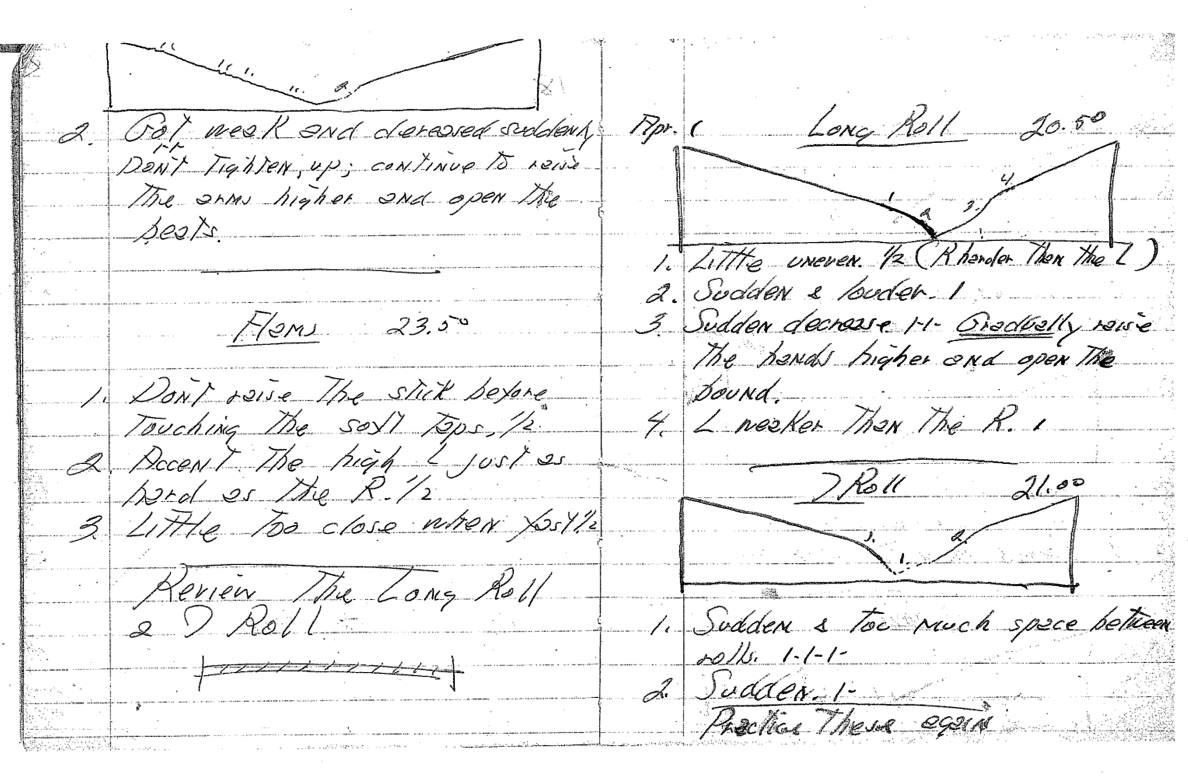 2. Got weak and decreased suddenly
Don't Tighten up; continue to raise
The arms higher and open the
beats.
Flams 23.50
1. Don't raise The stick before
Touching the soft Taps. 1/2
2. Accent The high L just as
hard as the R. 1/2
3. Little Too close when fast 1/2
Review The Long Roll
2 7 Roll
Apr. 1 Long Roll 20.50
1
2
3.
4.
1. Little uneven 1/2 (R harder Than the L)
2. Sudden & louder. 1
3. Sudden decrease 1-1- Gradually raise
The hands higher and open The
bound.
4. L weaker Than The R. 1
7 Roll 21.00
3.
1.
2.
1. Sudden & Too much space between
rolls. 1-1-1-
2. Sudden. 1-
Practice These again